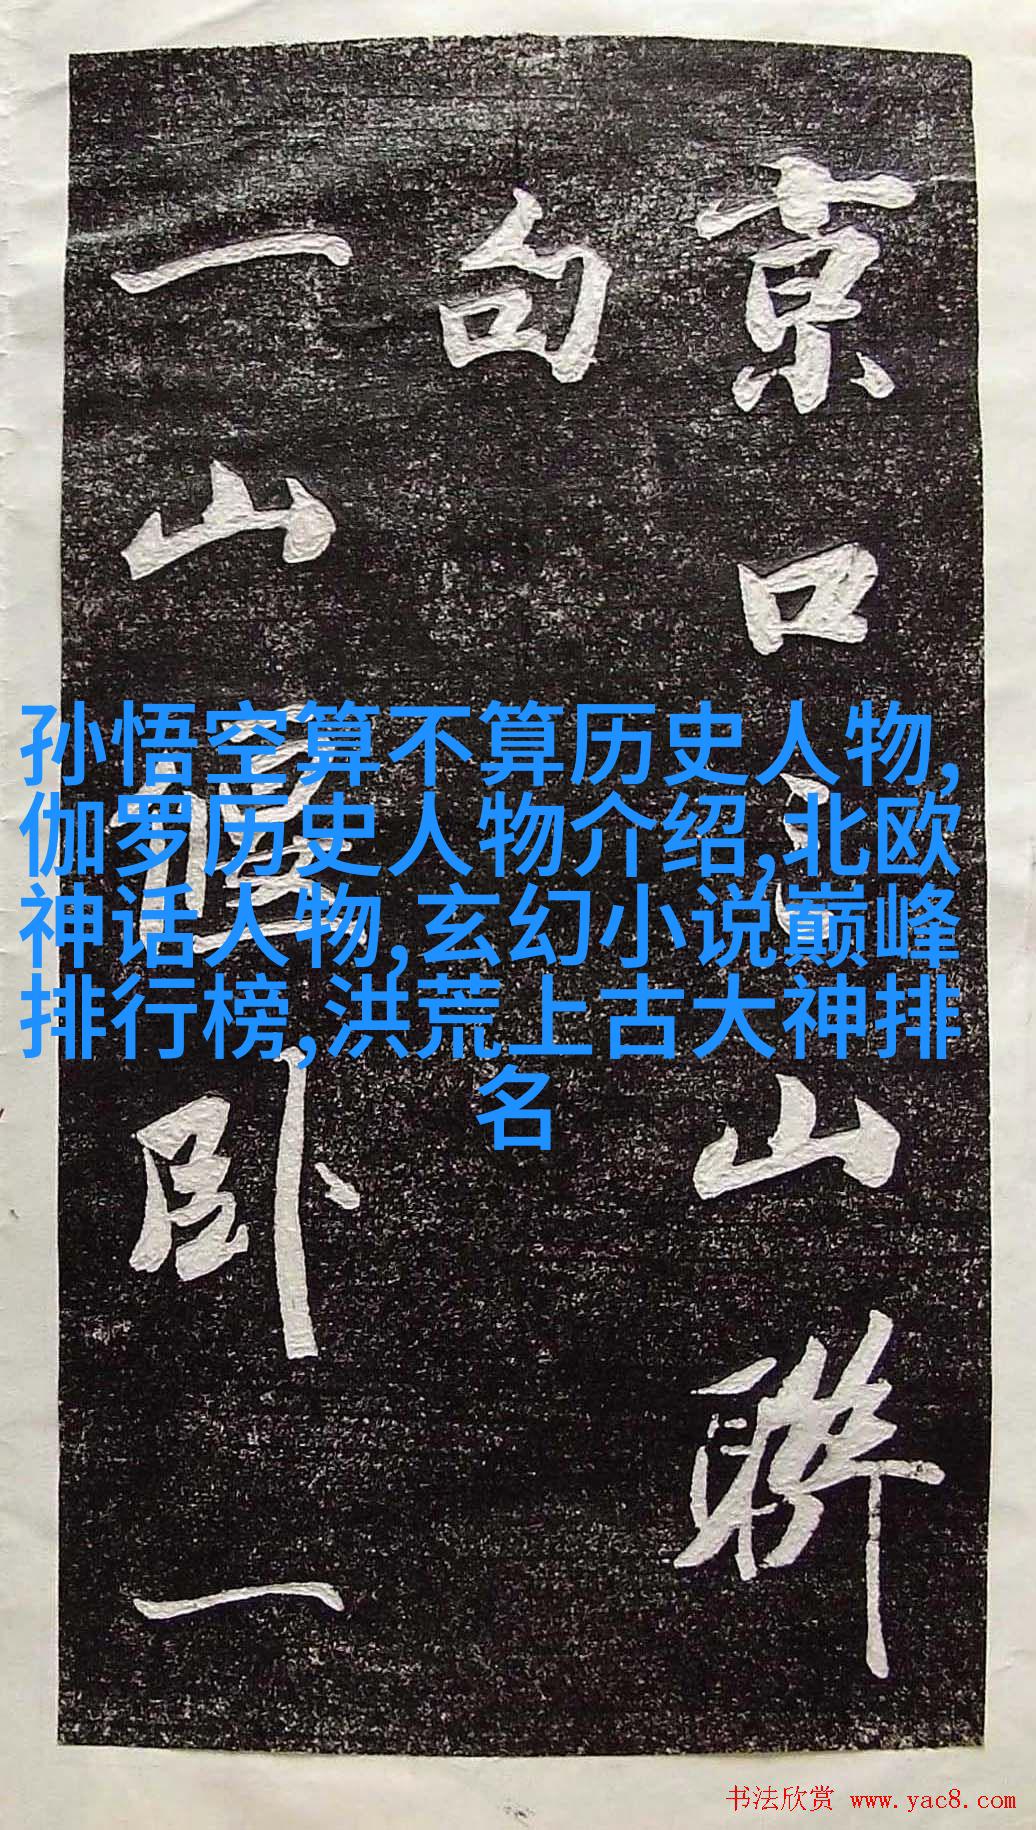 京口三山聯
句
一山偃卧一
孙悟空算不算历史人物,
伽罗历史人物介绍,北欧
神话人物,玄幻小说巅峰
排行榜,洪荒上古大神排
名
书法欣赏 www.yac8.com